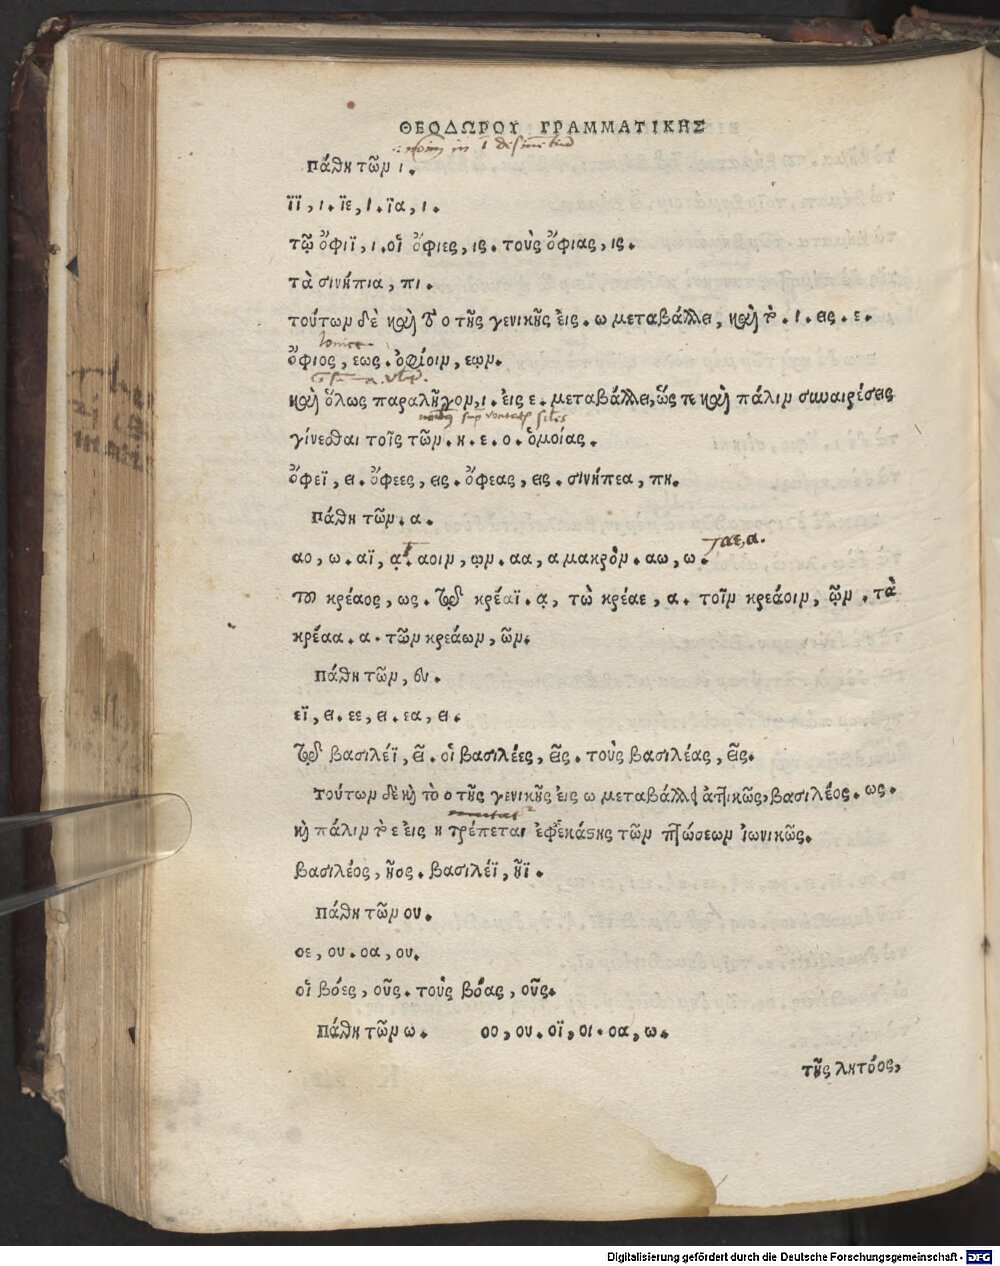 ΘΕΟΔΩΡΟΥ ΓΡΑΜΜΑΤΙΚΗΣ
Πάθη τῶν ι.
ϊϊ, ι. ϊε, ι. ϊα, ι.
τῷ ὄφιϊ, ι. οἱ ὄφιες, ις. τοὺς ὄφιας, ις.
τὰ σινήπια, πι.
τούτων δὲ καὶ τὸ ο τῆς γενικῆς εἰς. ω μεταβάλλει, καὶ τὸ. ι. εις. ε.
Ionice
ὄφιος, εως. ὀφίοιν, εῳν.
καὶ ὅλως παραλῆγον, ι. εἰς ε. μεταβάλλει, ὥς τε καὶ πάλιν συναιρέσεις
γίνεσθαι τοῖς τῶν. η. ε. ο. ὁμοίας.
ὄφεϊ, ει. ὄφεες, εις. ὄφεας, εις. σινήπεα, πη.
Πάθη τῶν. α.
αε, α.
αο, ω. αϊ, ᾳ. αοιν, ῳν. αα, α μακρὸν. αω, ω.
τοῦ κρέαος, ως. τῷ κρέαϊ. ᾳ, τὼ κρέαε, α. τοῖν κρεάοιν, ῷν. τὰ
κρέαα. α. τῶν κρεάων, ῶν.
Πάθη τῶν, ευ.
εϊ, ει. εε, ει. εα, ει.
τῷ βασιλέϊ, εῖ. οἱ βασιλέες, εῖς. τοὺς βασιλέας, εῖς.
τούτων δὲ καὶ τὸ ο τῆς γενικῆς εἰς ω μεταβάλλεται ἀττικῶς, βασιλέος. ως.
καὶ πάλιν τὸ ε εἰς η τρέπεται ἐφ' ἑκάστης τῶν πτώσεων ἰωνικῶς.
βασιλέος, ῆος. βασιλέϊ, ῆϊ.
Πάθη τῶν ου.
οε, ου. οα, ου.
οἱ βόες, οῦς. τοὺς βόας, οῦς.
Πάθη τῶν ω. οο, ου. οϊ, οι. οα, ω.
τῆς λητόος,
Digitalisierung gefördert durch die Deutsche Forschungsgemeinschaft - DFG